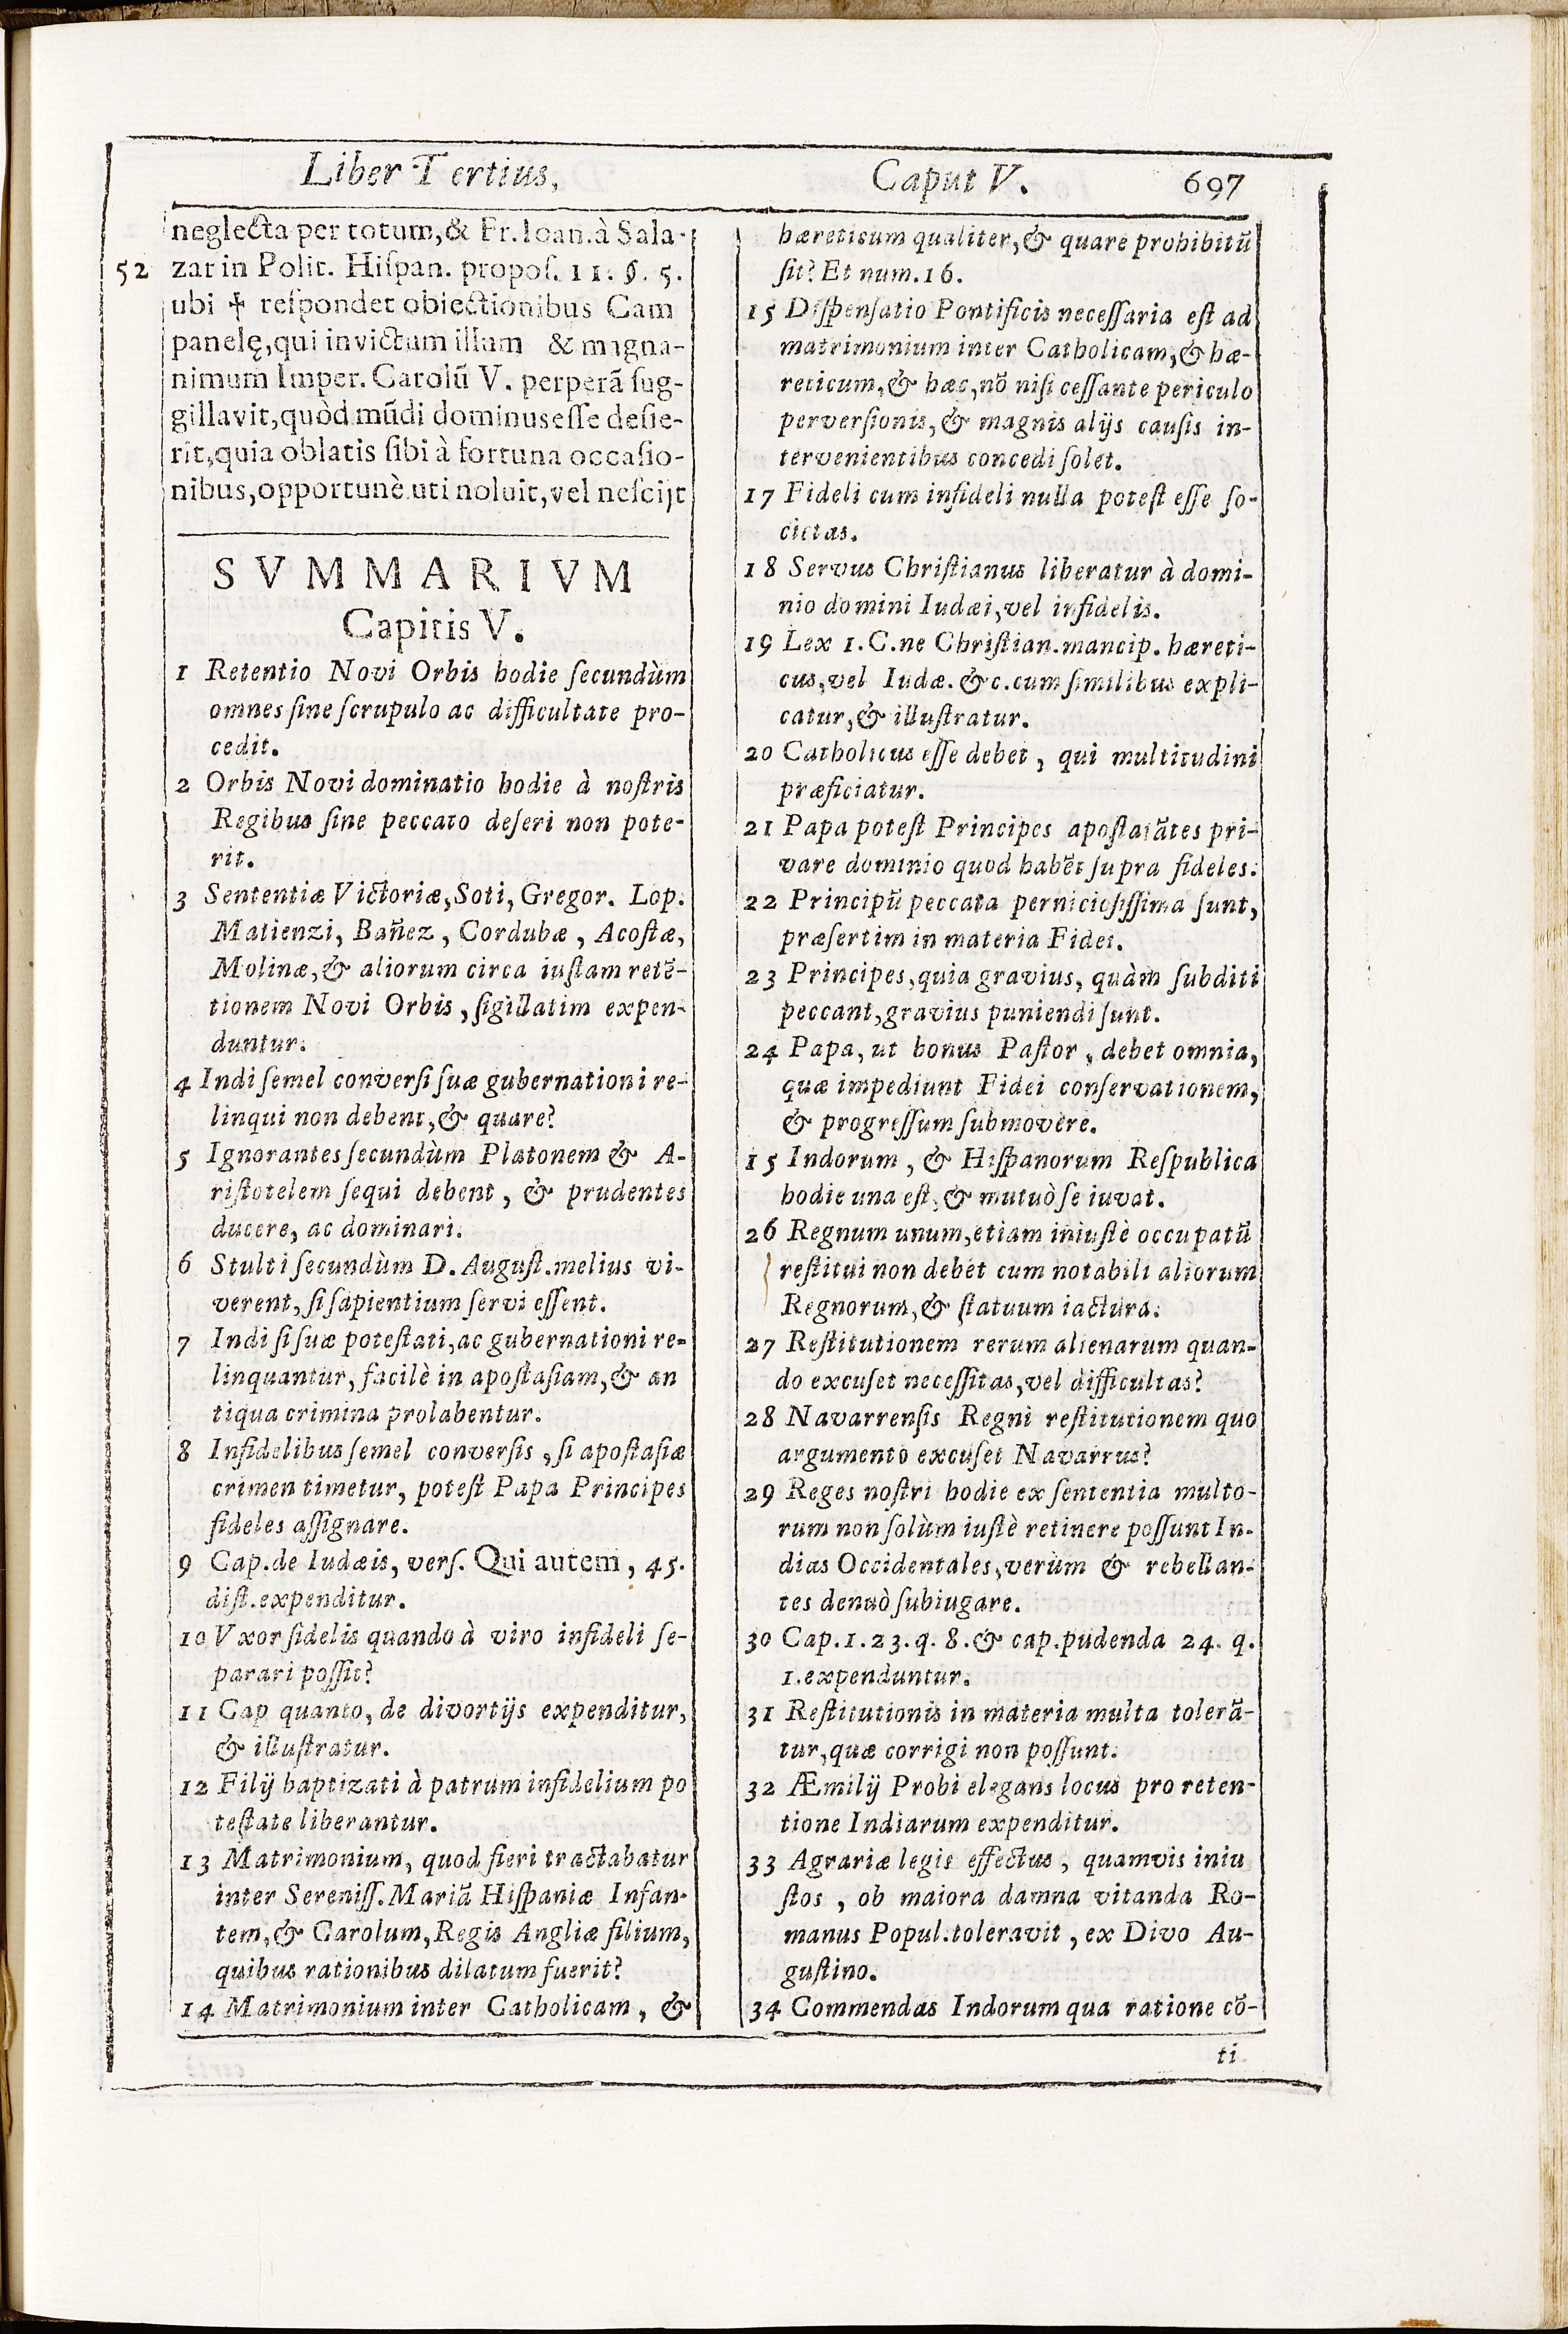 Liber Tertius, Caput V. 697
neglecta per totum,& Fr.Ioan.à Sala-
52 zar in Polit. Hiſpan. propoſ. 11. §. 5.
ubi ✝ reſpondet obiectionibus Cam
panelę,qui invictum illum & magna-
nimum Imper. Carolũ V. perperã ſug-
gillavit,quòd mũdi dominus eſſe deſie-
rit,quia oblatis ſibi à fortuna occaſio-
nibus,opportunè uti noluit,vel neſcijt
SVMMARIVM
Capitis V.
1 Retentio Novi Orbis hodie ſecundùm
omnes ſine ſcrupulo ac difficultate pro-
cedit.
2 Orbis Novi dominatio hodie à noſtris
Regibus ſine peccato deſeri non pote-
rit.
3 Sententiæ Victoriæ,Soti, Gregor. Lop.
Matienzi, Bañez, Cordubæ, Acoſtæ,
Molinæ,& aliorum circa iuſtam retẽ-
tionem Novi Orbis, ſigillatim expen-
duntur.
4 Indi ſemel converſi ſuæ gubernationi re-
linqui non debent,& quare?
5 Ignorantes ſecundùm Platonem & A-
riſtotelem ſequi debent, & prudentes
ducere, ac dominari.
6 Stulti ſecundùm D. Auguſt.melius vi-
verent, ſi ſapientium ſervi eſſent.
7 Indi ſi ſuæ poteſtati,ac gubernationi re-
linquantur, facilè in apoſtaſiam,& an
tiqua crimina prolabentur.
8 Infidelibus ſemel converſis, ſi apoſtaſiæ
crimen timetur, poteſt Papa Principes
fideles aſſignare.
9 Cap.de Iudæis, verſ. Qui autem, 45.
diſt.expenditur.
10 Vxor fidelis quando à viro infideli ſe-
parari poſſit?
11 Cap quanto, de divortijs expenditur,
& illuſtratur.
12 Filij baptizati à patrum infidelium po
teſtate liberantur.
13 Matrimonium, quod fieri tractabatur
inter Sereniſſ.Mariã Hiſpaniæ Infan-
tem,& Carolum,Regis Angliæ filium,
quibus rationibus dilatum fuerit?
14 Matrimonium inter Catholicam, &
hæreticum qualiter,& quare prohibitũ
ſit? Et num.16.
15 Diſpenſatio Pontificis neceſſaria eſt ad
matrimonium inter Catholicam,& hæ-
reticum,& hæc,nõ niſi ceſſante periculo
perverſionis,& magnis alijs cauſis in-
tervenientibus concedi ſolet.
17 Fideli cum infideli nulla poteſt eſſe ſo-
cietas.
18 Servus Chriſtianus liberatur à domi-
nio domini Iudæi,vel infidelis.
19 Lex 1.C.ne Chriſtian.mancip. hæreti-
cus,vel Iudæ.&c.cum ſimilibus expli-
catur,& illuſtratur.
20 Catholicus eſſe debet, qui multitudini
præficiatur.
21 Papa poteſt Principes apoſtatãtes pri-
vare dominio quod habẽt ſupra fideles.
22 Principũ peccata pernicioſiſſima ſunt,
præſertim in materia Fidei.
23 Principes,quia gravius, quàm ſubditi
peccant,gravius puniendi ſunt.
24 Papa, ut bonus Paſtor, debet omnia,
quæ impediunt Fidei conſervationem,
& progreſſum ſubmovere.
15 Indorum, & Hiſpanorum Reſpublica
hodie una eſt, & mutuò ſe iuvat.
26 Regnum unum,etiam iniuſtè occupatũ
reſtitui non debet cum notabili aliorum
Regnorum,& ſtatuum iactura.
27 Reſtitutionem rerum alienarum quan-
do excuſet neceſſitas,vel difficultas?
28 Navarrenſis Regni reſtitutionem quo
argumento excuſet Navarrus?
29 Reges noſtri hodie ex ſententia multo-
rum non ſolùm iuſtè retinere poſſunt In-
dias Occidentales,verùm & rebellan-
tes denuò ſubiugare.
30 Cap.1.23.q. 8.& cap.pudenda 24. q.
1.expenduntur.
31 Reſtitutionis in materia multa tolerã-
tur,quæ corrigi non poſſunt.
32 Æmilij Probi elegans locus pro reten-
tione Indiarum expenditur.
33 Agrariæ legis effectus, quamvis iniu
ſtos, ob maiora damna vitanda Ro-
manus Popul.toleravit, ex Divo Au-
guſtino.
34 Commendas Indorum qua ratione cõ-
ti